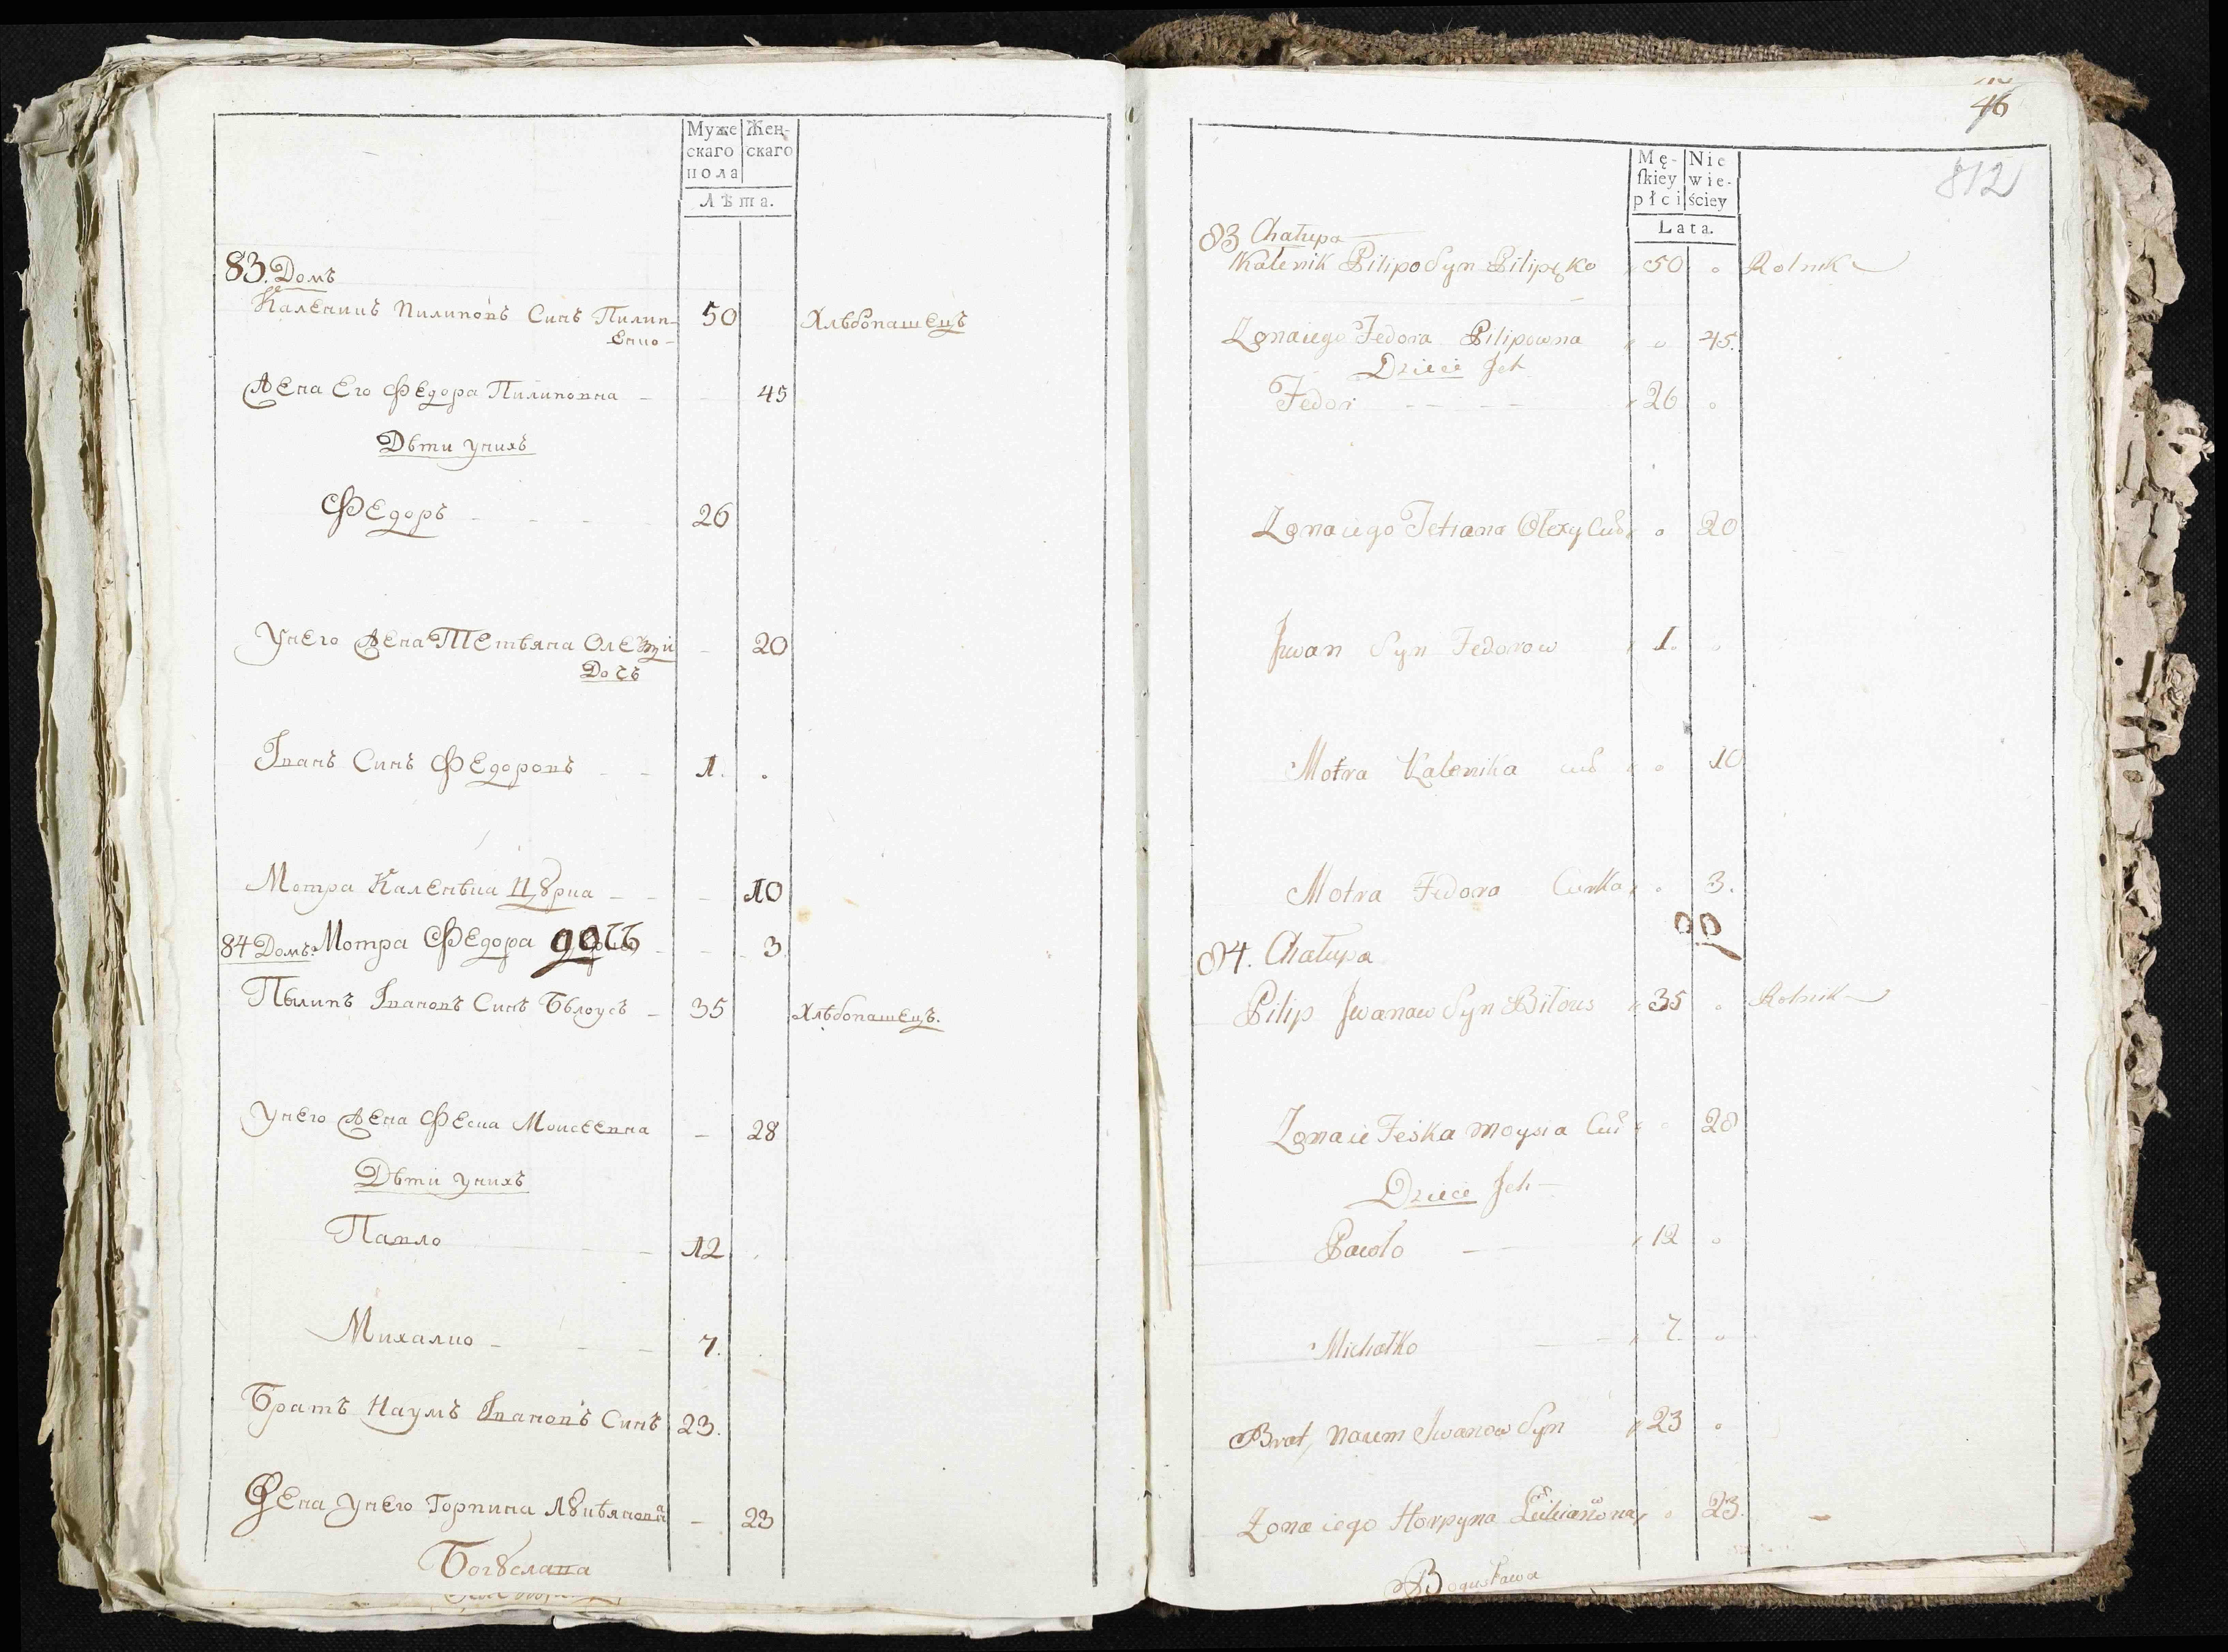 Муже
скаго
пола
Жен-
скаго
Лѣта.
83. Домъ
Каленикъ Пилиповъ Синъ Пилип-
енко 50 Хлѣбопашецъ
Жена Его Федора Пилиповна 45
Дѣти унихъ
Федоръ 26
Унего Жена Тетѣяна Олекѣи
Дочъ 20
Іванъ Синъ Федоровъ 1.
Мотра Каленѣка Цꙋрка 10
84 Домъ. Мотра Федора дочь 3.
Пилипъ Івановъ Синъ Бѣлоусъ 35 Хлѣбопашецъ.
Унего Жена Феска Моисеевна 28
Дѣти унихъ
Павло 12
Михалко 7.
Братъ Наумъ Івановъ Синъ 23.
Жена унего Горпина Лꙋкѣяновна 23
Богꙋслава
46
812
Mę-
ſkiey
płci
Nie
wie-
ściey
Lata.
83 Chałupa
Kalenik Pilipo Syn Pilipęko 50 Rolnik
Żona iego Fedora Pilipowna 45.
Dzieci Jch
Fedor 26
Żona iego Tetiana Olexy Cur 20
Jwan Syn Fedorow 1.
Motra Kalenika cur 10
Motra Fedora Curka 3.
84. Chałupa
Pilip Jwanaw Syn Biłous 35 Rolnik
Żona ie Feśka Moysia Cur 28
Dzieci Jch
Pawło 12
Michałko 7
Brat, Naum Jwanow Syn 23
Żona iego Horpyna Łukianowna 23.
Bogusława